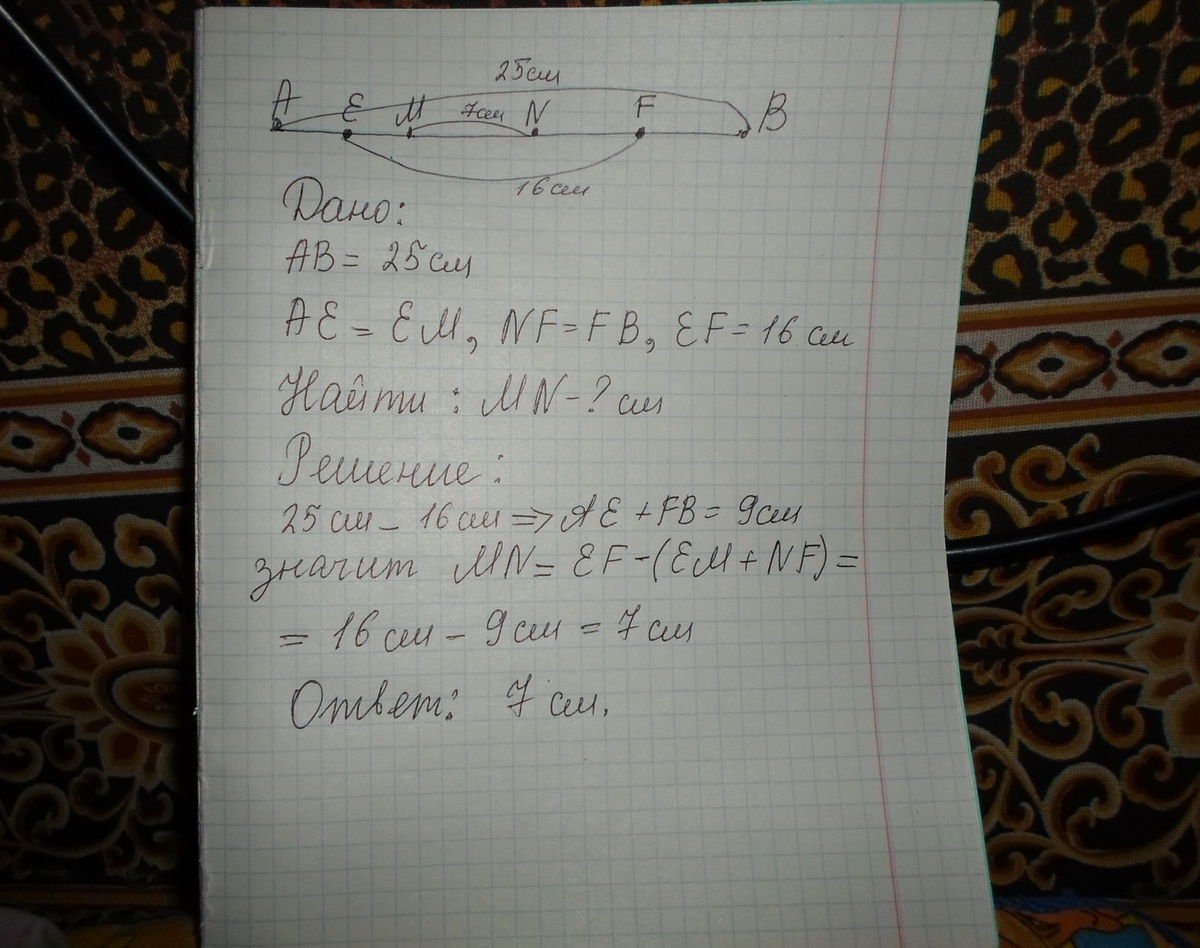 25см
A E M 7см N F B
16см
Дано:
AB = 25см
AE = EM, NF = FB, EF = 16 см
Найти : MN - ? см
Решение :
25 см - 16 см => AE + FB = 9см
значит MN = EF - (EM + NF) =
= 16 см - 9 см = 7 см
Ответ: 7 см.